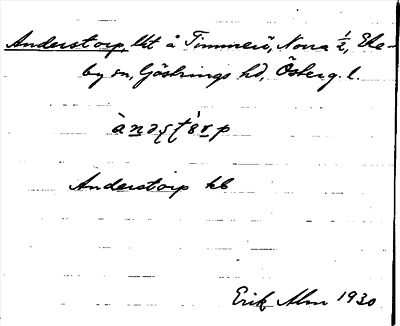 Anderstorp, lht å Timmerö, Norra ½, Eke-
by sn, Göstrings hd, Österg. l.
Anderstorp kb
Erik Alm 1930